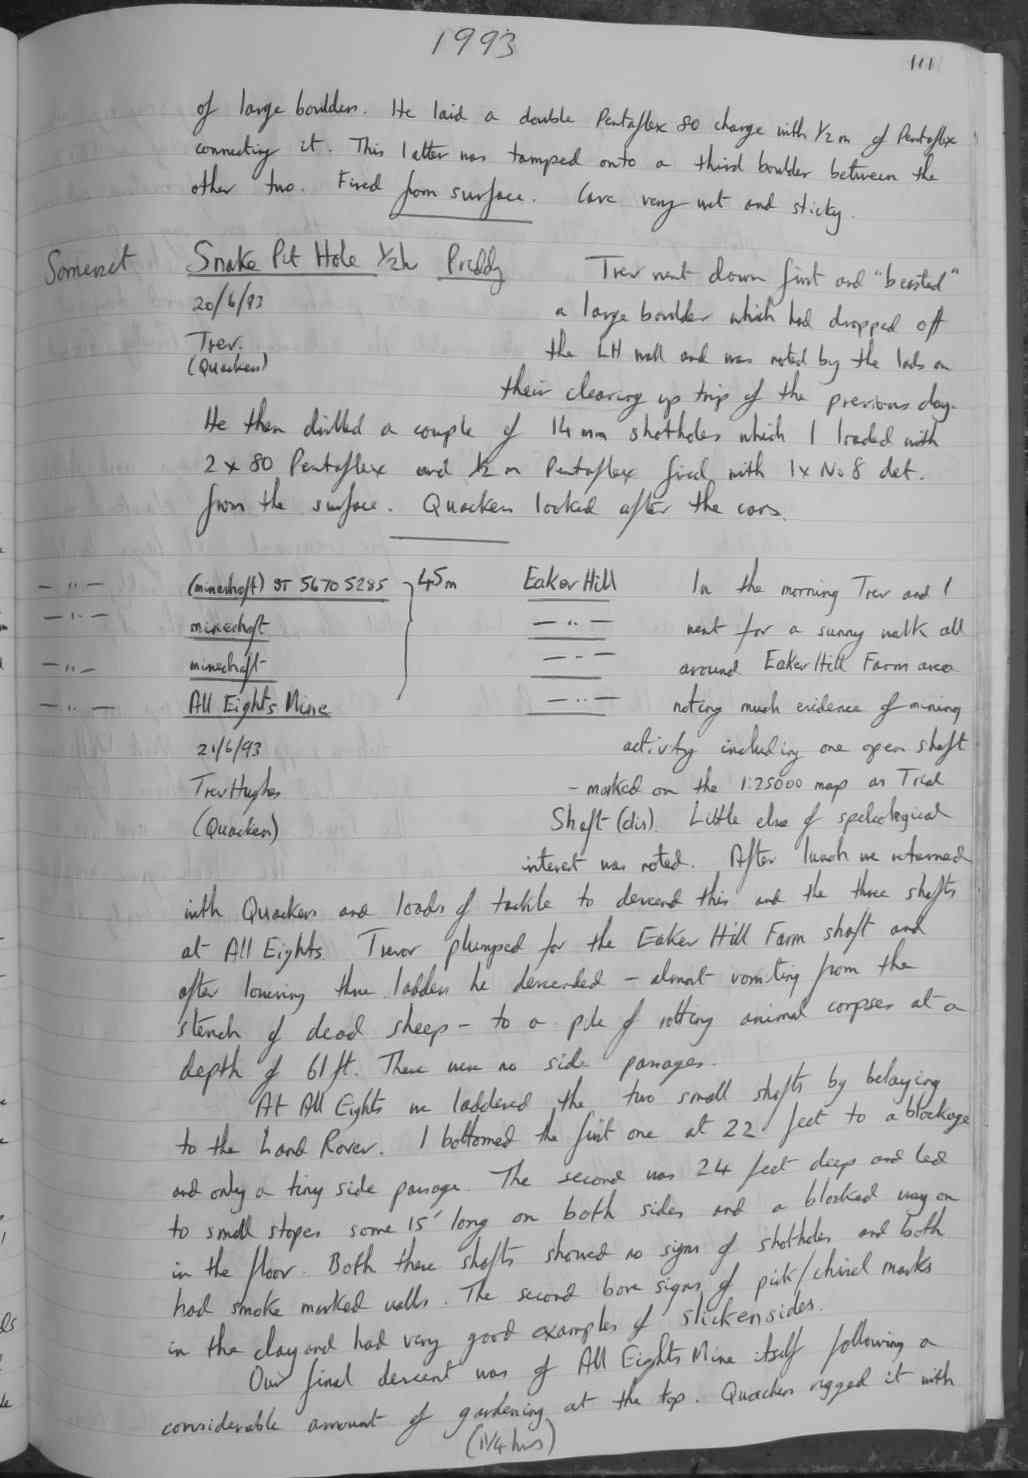 1993
111
of large boulders. He laid a double Pentaflex 80 charge with 1/2 m of Pentaflex
connecting it. This latter was tamped onto a third boulder between the
other two. Fired from surface. Cave very wet and sticky.
Somerset Snake Pit Hole 1/2h Priddy Trev went down first and "beasted"
20/6/93 a large boulder which had dropped off
Trev. the LH wall and was noted by the lads on
(Quackers)
their clearing up trip of the previous day.
He then drilled a couple of 14 mm shotholes which I loaded with
2 x 80 Pentaflex and 1/2 m Pentaflex fired with 1 x No 8 det.
from the surface. Quackers looked after the cars.
— " — (mineshaft) ST 5670 5285 } 45m Eaker Hill In the morning Trev and I
— " — mineshaft — " — went for a sunny walk all
— " — mineshaft — " — around Eaker Hill Farm area
— " — All Eights Mine — " — noting much evidence of mining
21/6/93 activity including one open shaft
Trev Hughes - marked on the 1:25000 map as Trial
(Quackers) Shaft (dis). Little else of speleological
interest was noted. After lunch we returned
with Quackers and loads of tackle to descend this and the three shafts
at All Eights. Trevor plumped for the Eaker Hill Farm shaft and
after lowering three ladders he descended - almost vomiting from the
stench of dead sheep - to a pile of rotting animal corpses at a
depth of 61 ft. There were no side passages.
At All Eights we laddered the two small shafts by belaying
to the Land Rover. I bottomed the first one at 22 feet to a blockage
and only a tiny side passage. The second was 24 feet deep and led
to small stopes some 15' long on both sides and a blocked way on
in the floor. Both these shafts showed no signs of shotholes and both
had smoke marked walls. The second bore signs of pick/chisel marks
in the clay and had very good examples of slickensides.
Our final descent was of All Eights Mine itself following a
considerable amount of gardening at the top. Quackers rigged it with
(1 1/4 hrs)